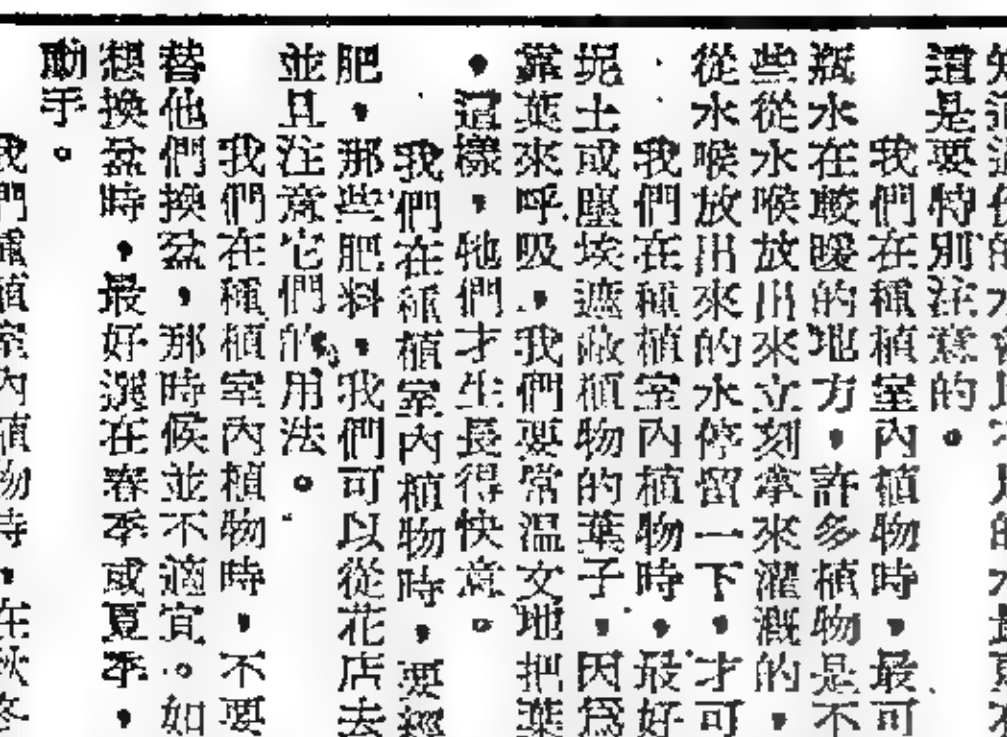 這是要特別注意的。
我們在種植室內植物時，最可
瓶水在較暖的地方，許多植物是不
些從水喉放出來立刻拿來灌溉的，
從水喉放出來的水停留一下，才可
我們在種植室內植物時，最好
坭土或塵埃遮蔽植物的葉子，因爲
靠葉來呼吸，我們要常溫文地把葉
，這樣，牠們才生長得快意。
我們在種植室內植物時，要經
肥，那些肥料，我們可以從花店去
並且注意它們的用法。
我們在種植室內植物時，不要
替他們換盆，那時候並不適宜。如
想換盆時，最好選在春季或夏季，
動手。
我們種植室內植物時，在秋冬